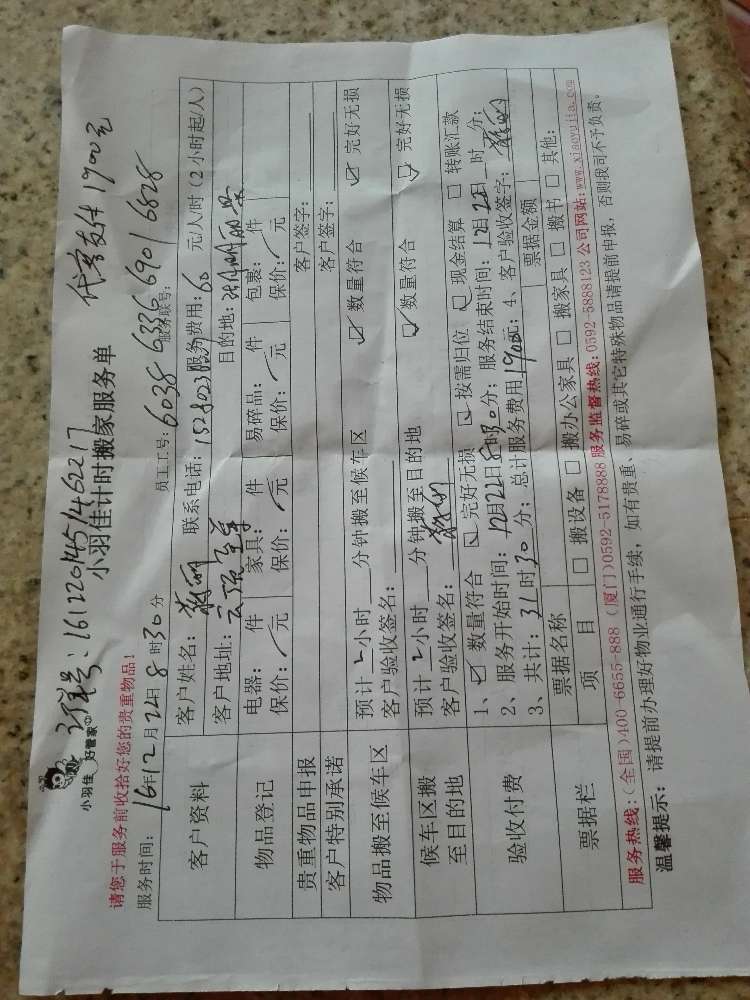 订单号:1612201451462217 代客支付1900元
小羽佳 好管家
小羽佳计时搬家服务单
请您于服务前收拾好您的贵重物品!
员工工号:6038 6336 6901 6828
服务联号:
服务时间:16年12月22日8时30分
客户资料
客户姓名: 联系电话: 服务费用:60元/人/时(2小时起/人)
客户地址: 目的地:
物品登记
电器: 件 家具: 件 易碎品: 件 包裹: 件
保价: 元 保价: 元 保价: 元 保价: 元
贵重物品申报 客户签字:
客户特别承诺 客户签字:
物品搬至候车区
预计2小时 分钟搬至候车区 ☑数量符合 ☑完好无损
客户验收签名:
候车区搬至目的地
预计2小时 分钟搬至目的地 ☑数量符合 ☑完好无损
客户验收签名:
验收付费
1、☑数量符合 ☑完好无损 ☑按需归位 ☑现金结算 □转账汇款
2、服务开始时间:12月22日8时30分;服务结束时间:12月22日 时 分;
3、共计:31时30分;总计服务费用1900元;4、客户验收签字:
票据栏
票据名称 票据金额
项目 □搬设备 □搬办公家具 □搬家具 □搬书 □其他:
服务热线:(全国)400-6655-888 (厦门)0592-5178888 服务监督热线:0592-5888123 公司网站:www.xiaoyujia.com
温馨提示: 请提前办理好物业通行手续,如有贵重、易碎或其它特殊物品请提前申报,否则我司不予负责。